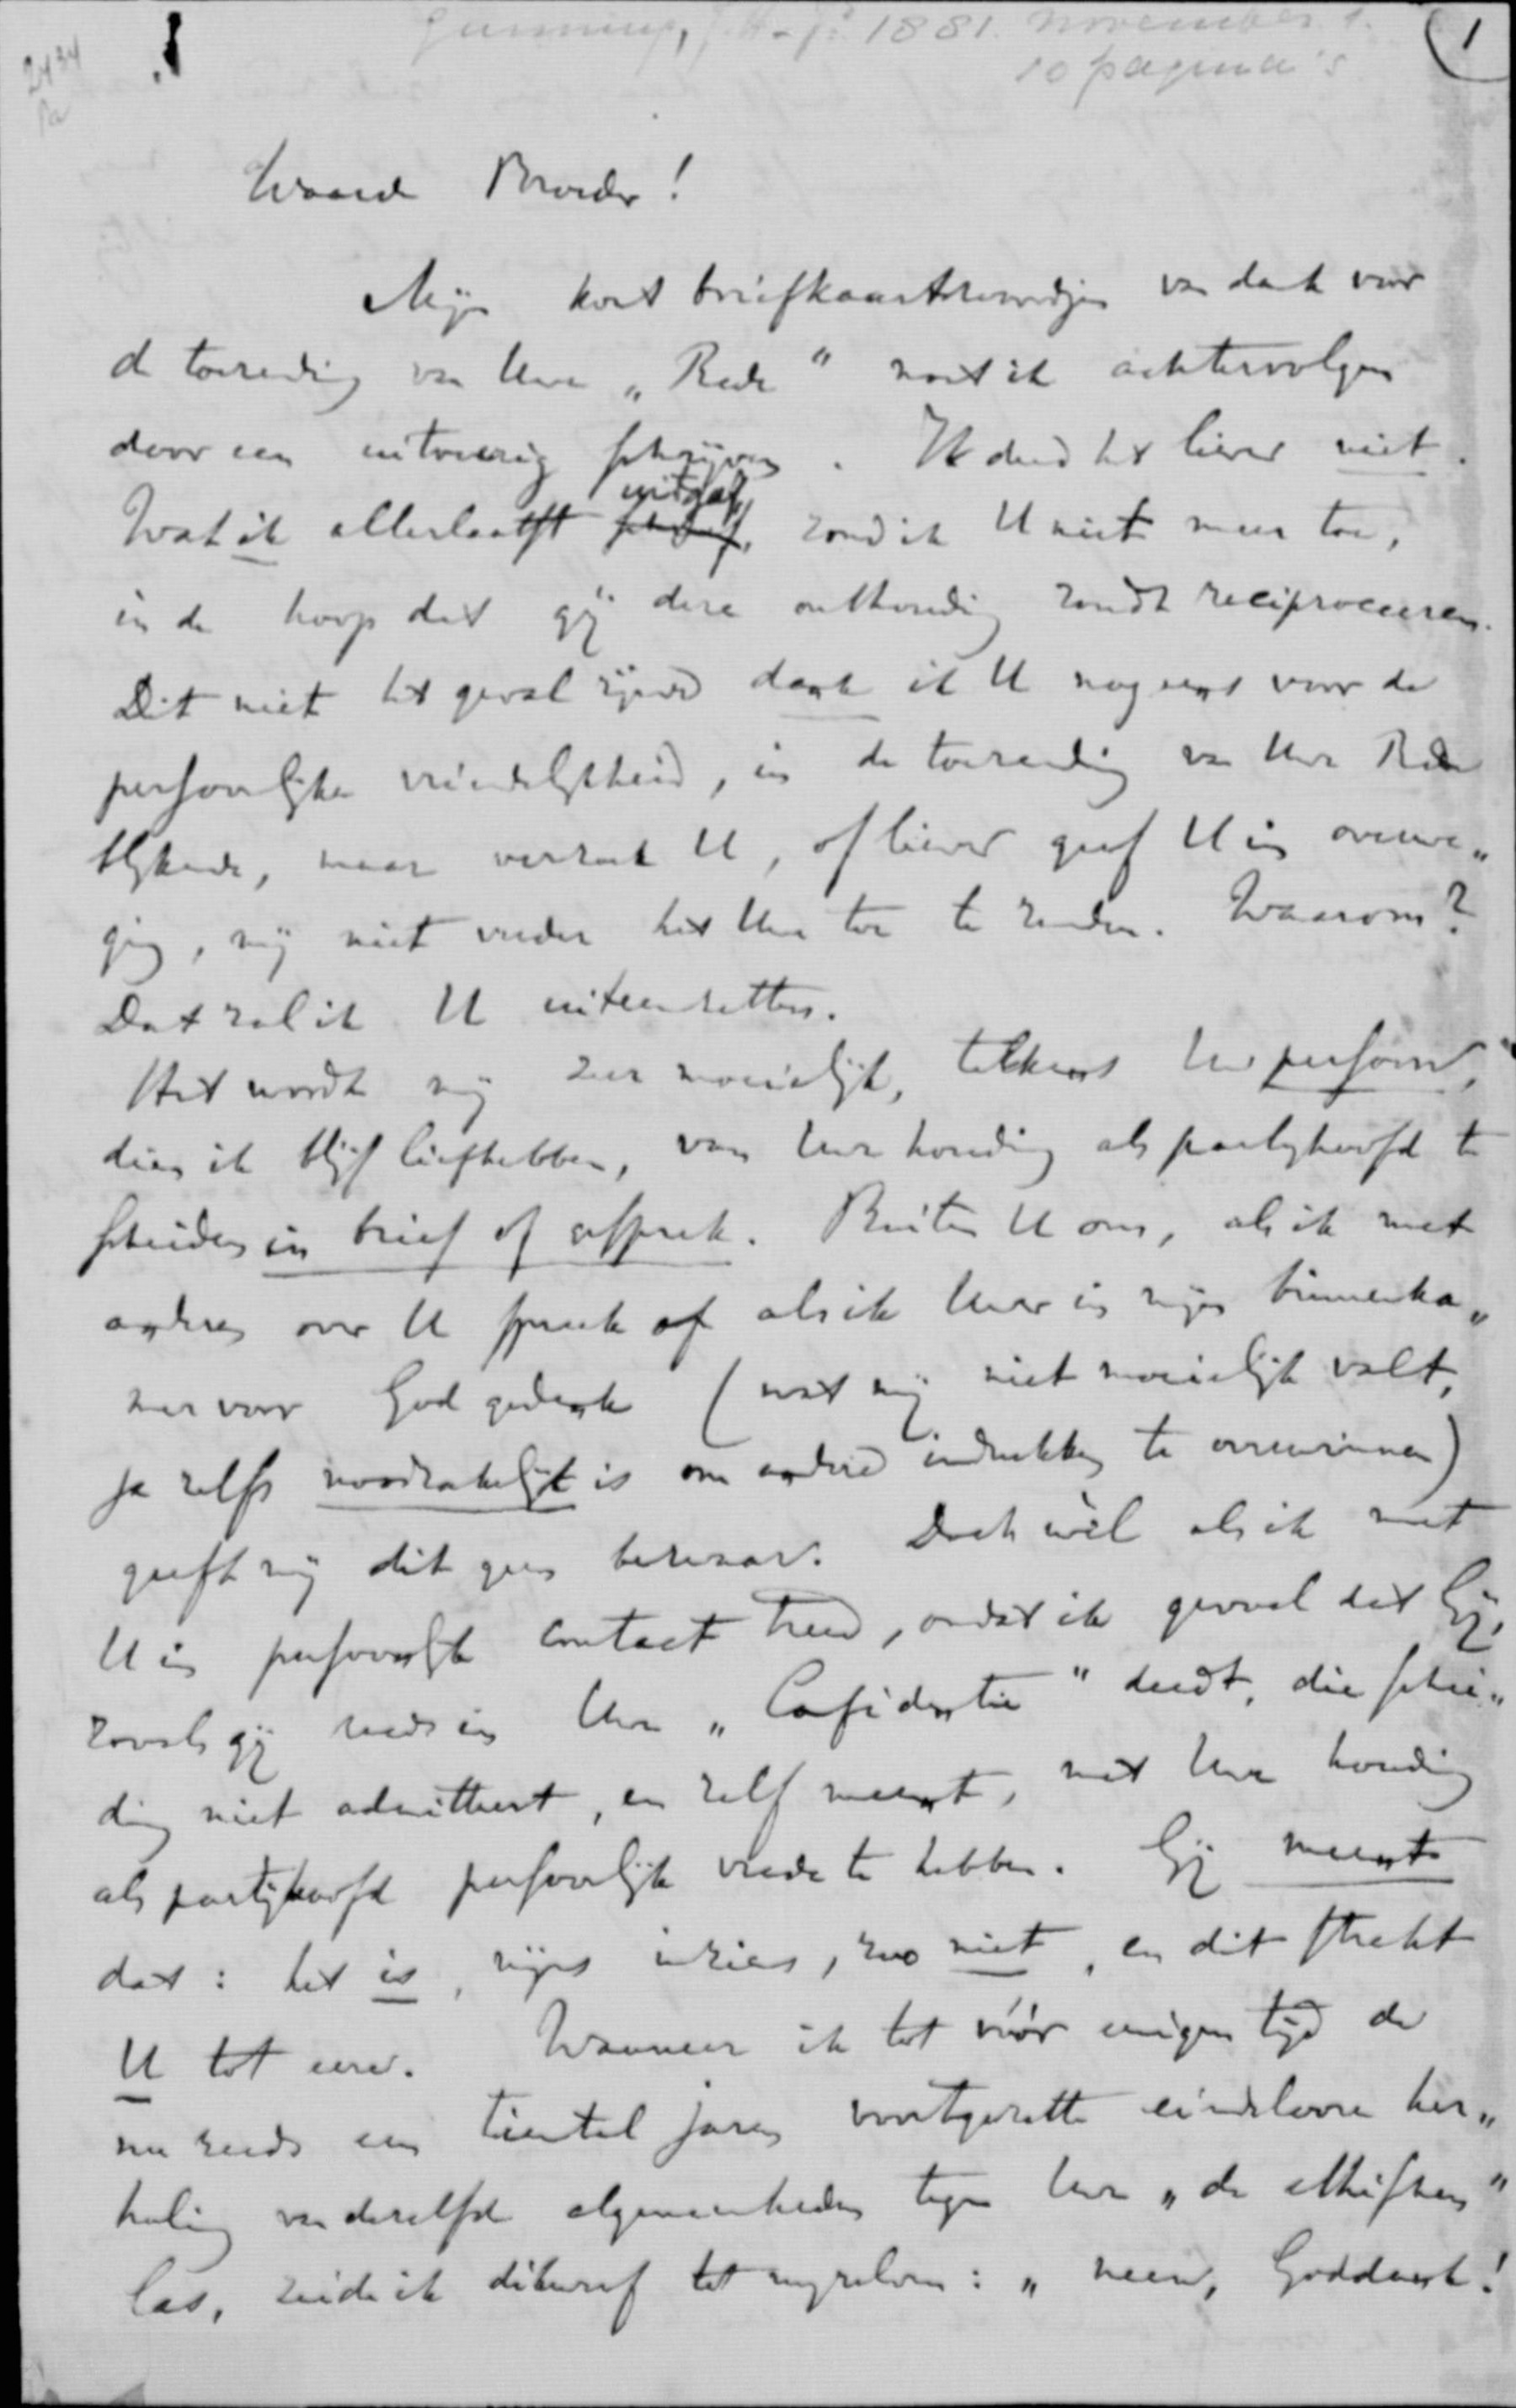 Gunning, J.H. Jr. 1881. november 1.
10 pagina's
1
2434
Pa
Waarde Broeder!
Mijn kort briefkaartwoordje van dank voor
de toezending van Uwe „Rede" moet ik achtervolgen
door een uitvoerig schrijven. Ik deed het liever niet.
Wat ik allerlaatst uitgaf, zond ik U niet meer toe,
in de hoop dat gij deze onthouding zoudt reciproceeren.
Dit niet het geval zijnde dank ik U nog eens voor de
persoonlijke vriendelijkheid, in de toezending van Uwe Rede
blijkende, maar verzoek U, of liever geef U in overwe„
ging, mij niet verder het Uwe toe te zenden. Waarom?
Dat zal ik U uiteenzetten.
Het wordt mij zeer moeielijk, telkens Uw persoon,
dien ik blijf liefhebben, van Uwe houding als partijhoofd te
scheiden in brief of gesprek. Buiten U om, als ik met
anderen over U spreek of als ik Uwer in mijn binnenka„
mer voor God gedenk (wat mij niet moeielijk valt,
ja zelfs noodzakelijk is om andere indrukken te overwinnen)
geeft mij dit geen bezwaar. Doch wèl als ik met
U in persoonlijk contact treed, omdat ik gevoel dat Gij,
zooals gij reeds in Uwe „Confidentie" deedt, die schei„
ding niet admitteert, en zelf meent, met Uwe houding
als partijhoofd persoonlijk vrede te hebben. Gij meent
dat: het is, mijns inziens, zoo niet, en dit strekt
U tot eere. Wanneer ik tot vóór eenigen tijd de
nu reeds een tiental jaren voortgezette eindelooze her„
haling van dezelfde algemeenheden tegen Uwe „de ethischen"
las, zeide ik dikwerf tot mijzelven: „neen, Goddank!